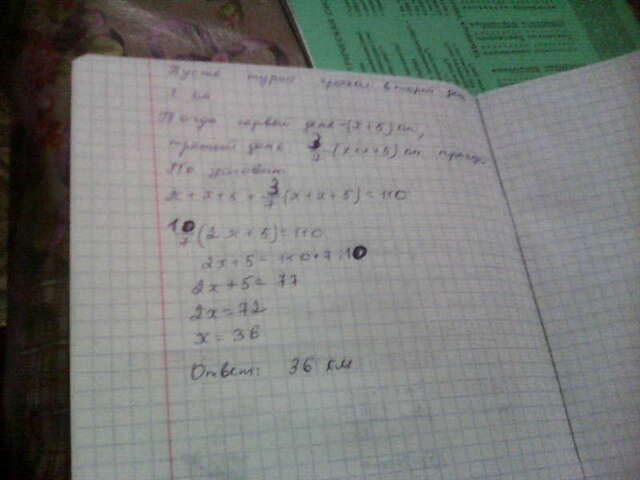 Пусть турист прошел второй день
x км
Тогда первый день - (x+5) км,
третий день 3/7 (x+x+5) км
По условию:
x + x + 5 + 3/7 (x+x+5) = 110
10/7 (2x+5) = 110
2x+5 = 110·7:10
2x+5 = 77
2x = 72
x = 36
Ответ: 36 км